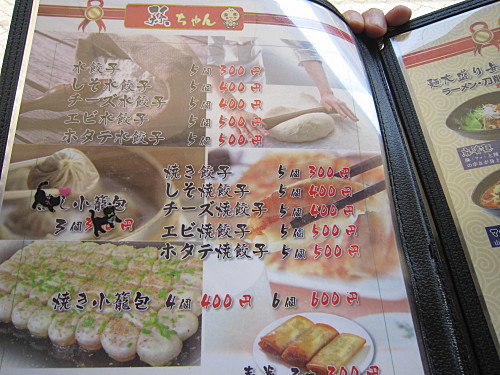 ちゃん
水餃子 5個 300円
しそ水餃子 5個 400円
チーズ水餃子 5個 400円
エビ水餃子 5個 500円
ホタテ水餃子 5個 500円
焼き餃子 5個 300円
しそ焼餃子 5個 400円
チーズ焼餃子 5個 400円
エビ焼餃子 5個 500円
ホタテ焼餃子 5個 500円
小籠包
3個 円
焼き小籠包 4個 400円 6個 600円
300円
麺大盛り
ラーメン・刀